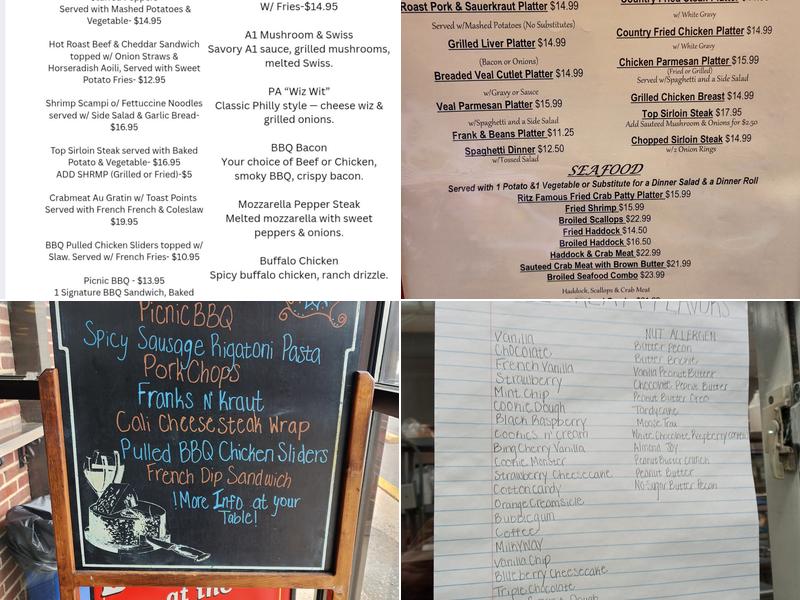 Served with Mashed Potatoes &
Vegetable- $14.95
Hot Roast Beef & Cheddar Sandwich
topped w/ Onion Straws &
Horseradish Aoili, Served with Sweet
Potato Fries- $12.95
Shrimp Scampi w/ Fettuccine Noodles
served w/ Side Salad & Garlic Bread-
$16.95
Top Sirloin Steak served with Baked
Potato & Vegetable- $16.95
ADD SHRMP (Grilled or Fried)-$5
Crabmeat Au Gratin w/ Toast Points
Served with French French & Coleslaw
$19.95
BBQ Pulled Chicken Sliders topped w/
Slaw. Served w/ French Fries- $10.95
Picnic BBQ - $13.95
1 Signature BBQ Sandwich, Baked
W/ Fries-$14.95
A1 Mushroom & Swiss
Savory A1 sauce, grilled mushrooms,
melted Swiss.
PA “Wiz Wit”
Classic Philly style — cheese wiz &
grilled onions.
BBQ Bacon
Your choice of Beef or Chicken,
smoky BBQ, crispy bacon.
Mozzarella Pepper Steak
Melted mozzarella with sweet
peppers & onions.
Buffalo Chicken
Spicy buffalo chicken, ranch drizzle.
Roast Pork & Sauerkraut Platter $14.99
Served w/Mashed Potatoes (No Substitutes)
Grilled Liver Platter $14.99
(Bacon or Onions)
Breaded Veal Cutlet Platter $14.99
w/Gravy or Sauce
Veal Parmesan Platter $15.99
w/Spaghetti and a Side Salad
Frank & Beans Platter $11.25
Spaghetti Dinner $12.50
w/Tossed Salad
Country Fried Steak Platter
w/ White Gravy
Country Fried Chicken Platter $14.99
w/ White Gravy
Chicken Parmesan Platter $15.99
(Fried or Grilled)
Served w/Spaghetti and a Side Salad
Grilled Chicken Breast $14.99
Top Sirloin Steak $17.95
Add Sauteed Mushroom & Onions for $2.50
Chopped Sirloin Steak $14.99
w/2 Onion Rings
SEAFOOD
Served with 1 Potato &1 Vegetable or Substitute for a Dinner Salad & a Dinner Roll
Ritz Famous Fried Crab Patty Platter $15.99
Fried Shrimp $15.99
Broiled Scallops $22.99
Fried Haddock $14.50
Broiled Haddock $16.50
Haddock & Crab Meat $22.99
Sauteed Crab Meat with Brown Butter $21.99
Broiled Seafood Combo $23.99
Haddock, Scallops & Crab Meat
Picnic BBQ
Spicy Sausage Rigatoni Pasta
Pork Chops
Franks N' Kraut
Cali Cheesesteak Wrap
Pulled BBQ Chicken Sliders
French Dip Sandwich
!More Info at your
Table!
at the
FLAVORS
Vanilla
Chocolate
French Vanilla
Strawberry
Mint Chip
Cookie Dough
Black Raspberry
Cookies n' cream
Bing Cherry Vanilla
Cookie Monster
Strawberry Cheesecake
Cotton candy
Orange Creamsicle
Bubblegum
Coffee
Milkyway
Vanilla Chip
Blueberry Cheesecake
Triple Chocolate
Dough
NUT ALLERGEN
Butter Pecan
Butter Brickle
Vanilla Peanut Butter
Chocolate Peanut Butter
Peanut Butter Oreo
Tandycake
Moose Trax
White Chocolate Raspberry
Almond Joy
Peanut Butter crunch
Peanut Butter
No Sugar Butter Pecan